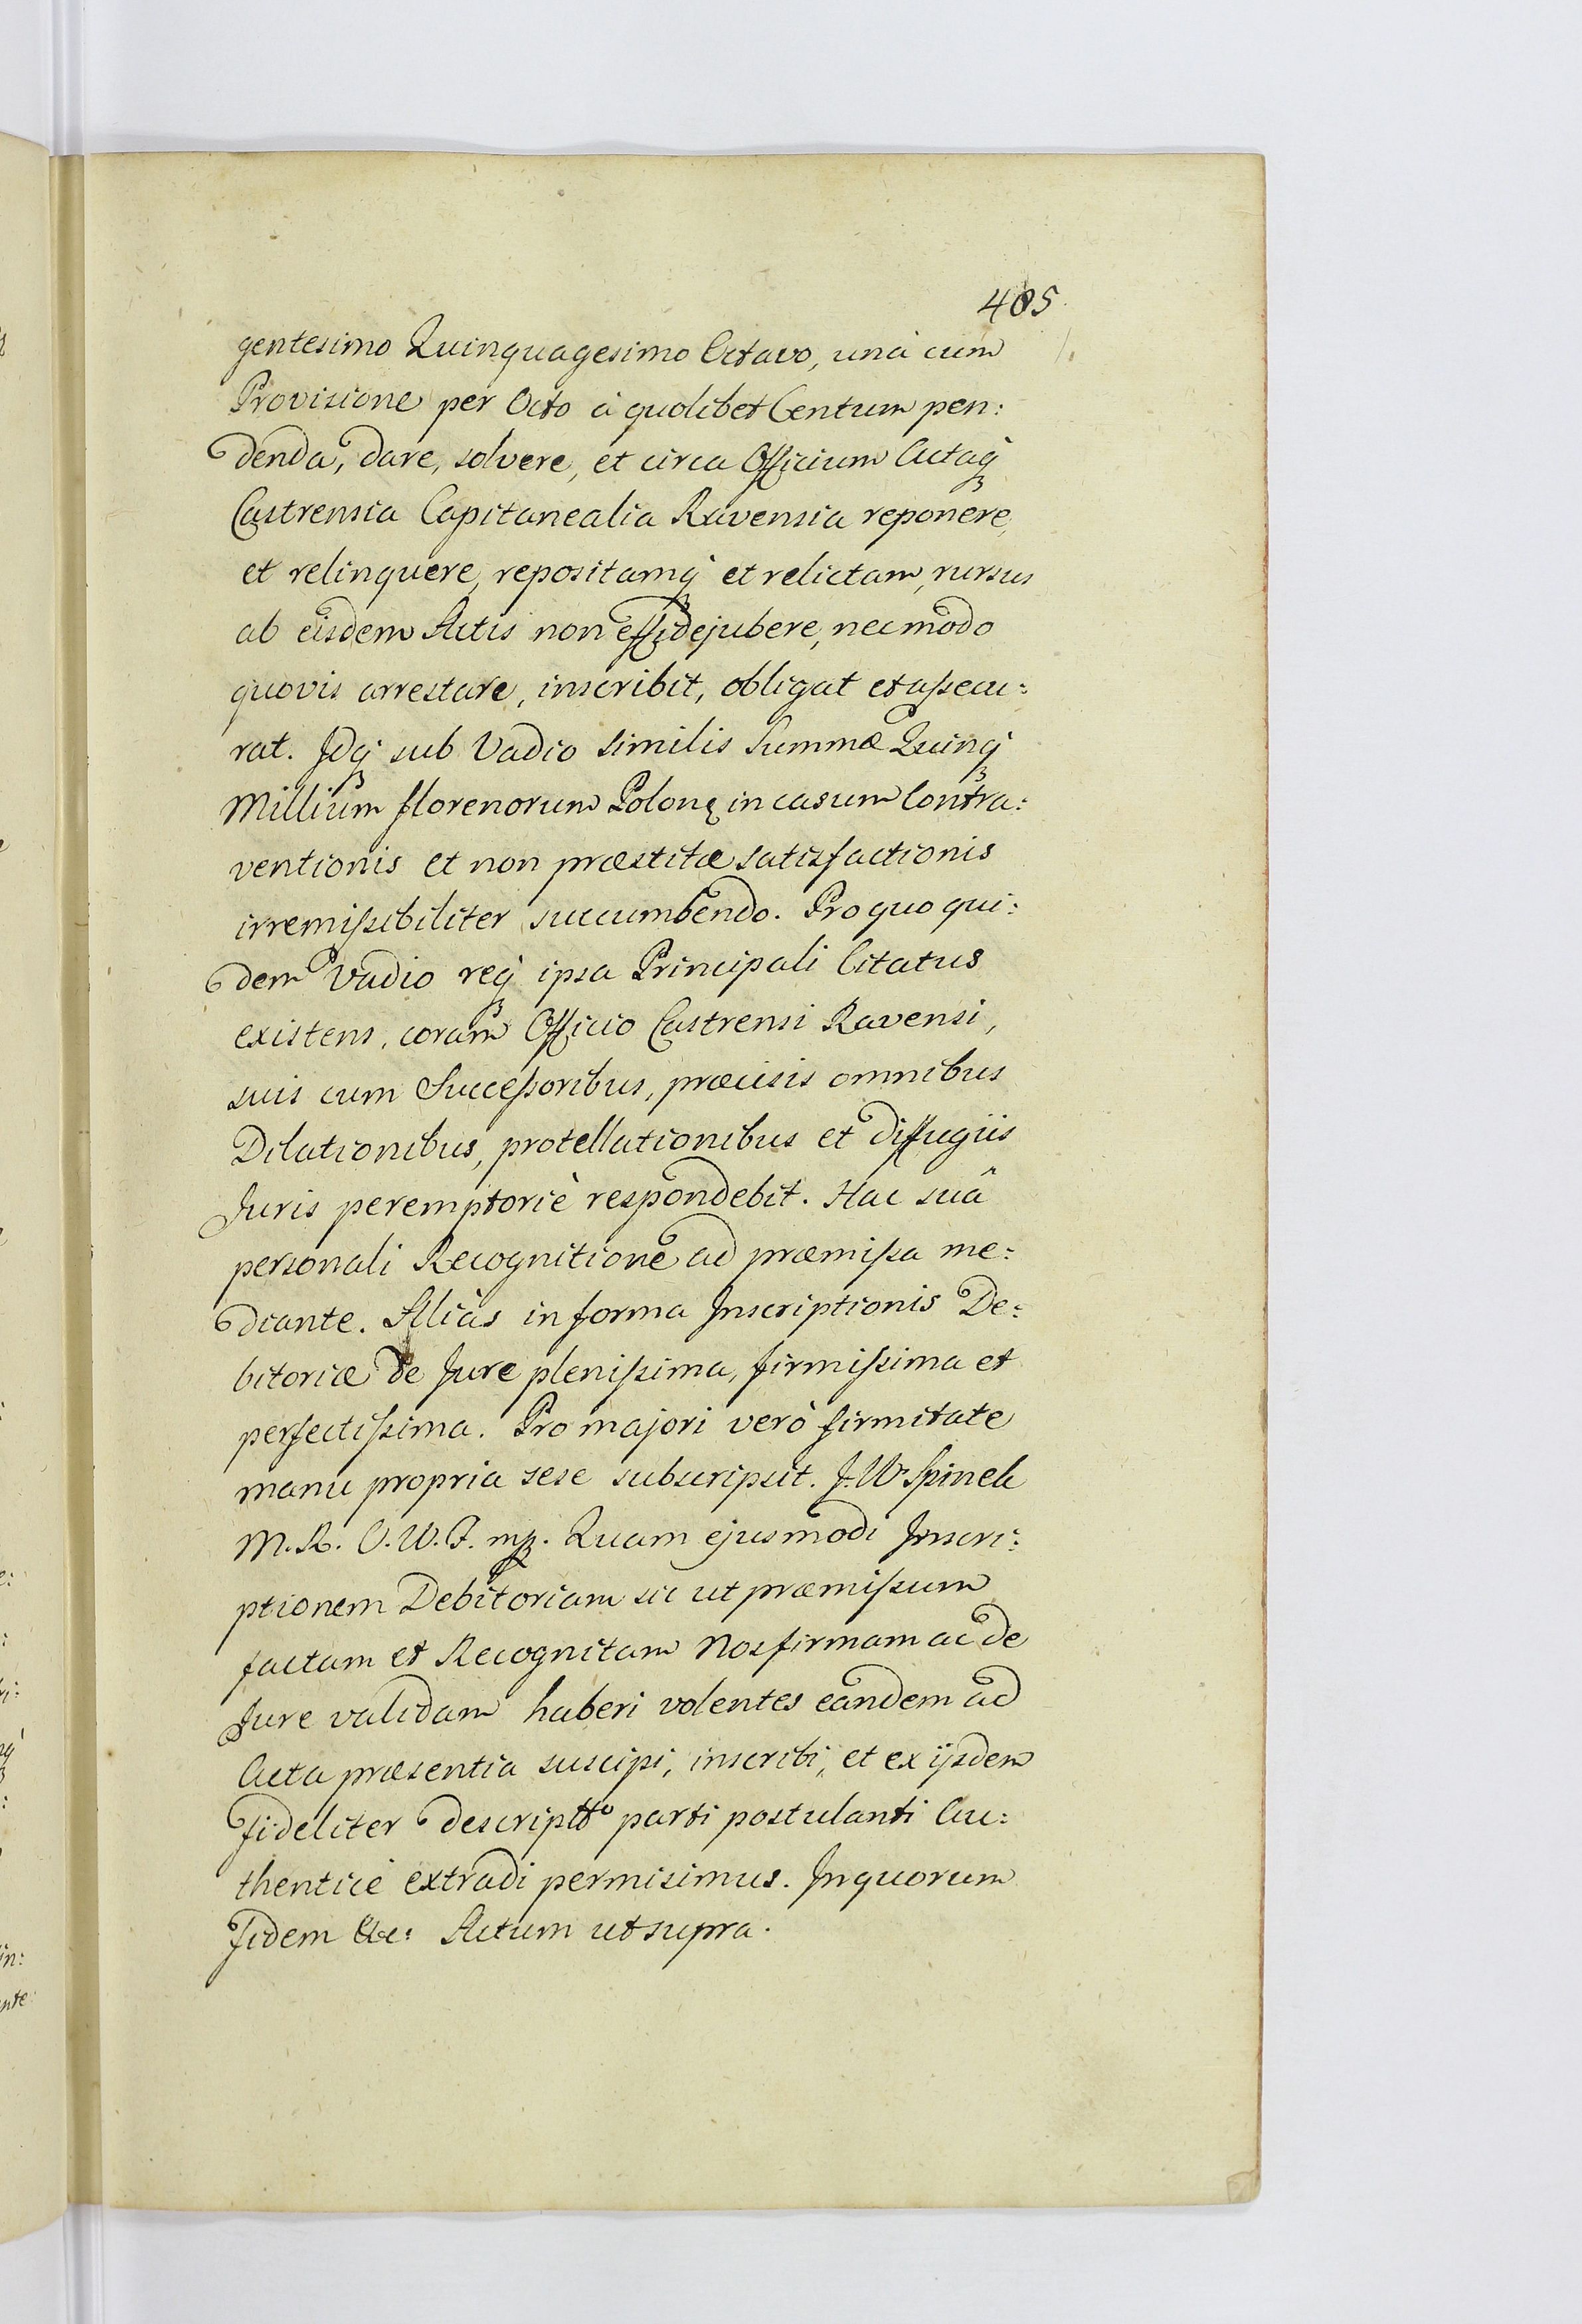 405
gentesimo Quinquagesimo Octavo, unà cum
Provisione per Octo à quolibet Centum pen:
denda, dare, solvere, et circa Officium Actaq́ꝫ
Castrensia Capitanealia Ravensia reponere,
et relinquere, repositamq́ꝫ et relictam, rursus
ab eisdem Actis non effidejubere, nec modo
quovis arrestare, inscribit, obligat et aßecu:
rat. Idq́ꝫ sub Vadio similis Summæ Quinq́ꝫ
Millium florenorum Polonę in casum Contra:
ventionis et non præstitæ satisfactionis
irremißibiliter succumbendo. Pro quo qui:
dem Vadio req́ꝫ ipsa Principali Citatus
existens, coram Officio Castrensi Ravensi,
suis cum Succeßoribus, præcisis omnibus
Dilationibus, protellationibus et diffugiis
Juris peremptoriè respondebit. Hac suâ
personali Recognitione ad præmißa me:
diante. Aliàs in forma Inscriptionis De:
bitoriæ de Jure plenißima, firmißima et
perfectißima. Pro majori verò firmitate
manu propria sese subscripsit. J. W. Spinek
M. R. O. W. F. mp. Quam ejusmodi Inscri:
ptionem Debitoriam sic ut præmißum
factam et Recognitam Nos firmam ac de
Jure validam haberi volentes eandem ad
Acta præsentia suscipi, inscribi, et ex ijsdem
fideliter descriptto parti postulanti Au:
thenticè extradi permisimus. In quorum
fidem &c: Actum ut supra.